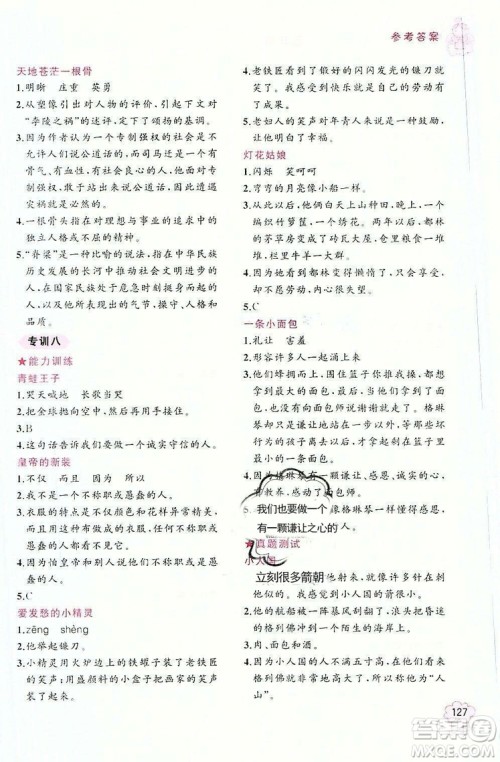 参考答案
天地苍茫一根骨
1.明晰 庄重 英勇
2.从塑像引出对人物的评价,引出对
“李陵之祸”的述评,定下了颂扬的基调。
3.因为作者认为专制强权的社会是不
允许人们说公道话的,而司马迁是个有
骨气、有血性、有社会良心的人,因此在
专制强权下,敢于站出来说公道话,因此
遭灾祸就是必然的。
4.一根骨头指在对理想与事业的追求中,
都体现了独立人格与力量的人。
5.“脊梁”是一种比喻的说法,指在中华民族
历史发展的长河中推动社会文明进步,
在国家民族危急时刻挺身而出的人。他
们身上体现出应有的气节、操守、人格和
力量。
专训八
★能力训练
青蛙王子
1.哭天喊地 长歌当哭
2.把金球抛向空中,然后再用手接住。
3.B
4.这句话告诉我们要做一个诚实守信的人。
皇帝的新装
1.不仅 而且 因为 所以
2.我是一个不称职或者愚蠢的人。
3.衣服的特点是不仅颜色和花样异常精美,
而且用这种布做成的衣服,不称职或愚
蠢的人看不见。
4.因为怕皇帝或者他人说他们不称职或者
愚蠢。
5.C
爱发愁的小精灵
1.zēng shèng
2.他爱挑剔。
3.小精灵用火炉边上的铁罐子装了老铁匠
的笑声;用盛颜料的小盒子把画家的笑声
装了起来。
4.老铁匠看到了锻好的闪闪发光的镰刀就
笑了。我感受到快乐就是自己的劳动有
了收获。
5.老妇人的笑声对年青人来说是一种鼓励,
让他对生活充满了力量。
灯花姑娘
1.闪烁 笑呵呵
2.弯弯的月亮像小船一样。
3.从他以后,他们俩白天上山种田,晚上一个
编织竹箩筐,一个绣花。很快,都林的
茅草房变成了砖瓦大屋,仓里粮食一堆
堆,栏里牛羊一大群。
4.因为她看到都林变得懒惰了,只想享福
却不愿劳动,内心很失望。
5.C
一条小面包
1.礼让 害羞
2.形容许多人一起涌上来。
3.他们蜂拥而上,拿到面包后,没有向面
包师说声谢谢就走了。格琳
琴只是谦让地站在一旁,等别的孩子离
去以后,才拿起剩在篮子里最
小的一条面包。
4.因为格琳琴有一颗谦让的心,
有教养,感动了面包师。
5.我们也要做一个像格琳琴一样
有一颗谦让之心的人。
★真题测试
小人国
1.立刻很多箭朝他射来,对我来说像针
刺似的。
2.他的航船被一阵暴风刮翻了,浪把昏迷
的格列佛冲到一个陌生的海滩上。
3.因为小人国的人大约五六寸高,而
格列佛非常地高大了,所以称他为“人
山”。
127